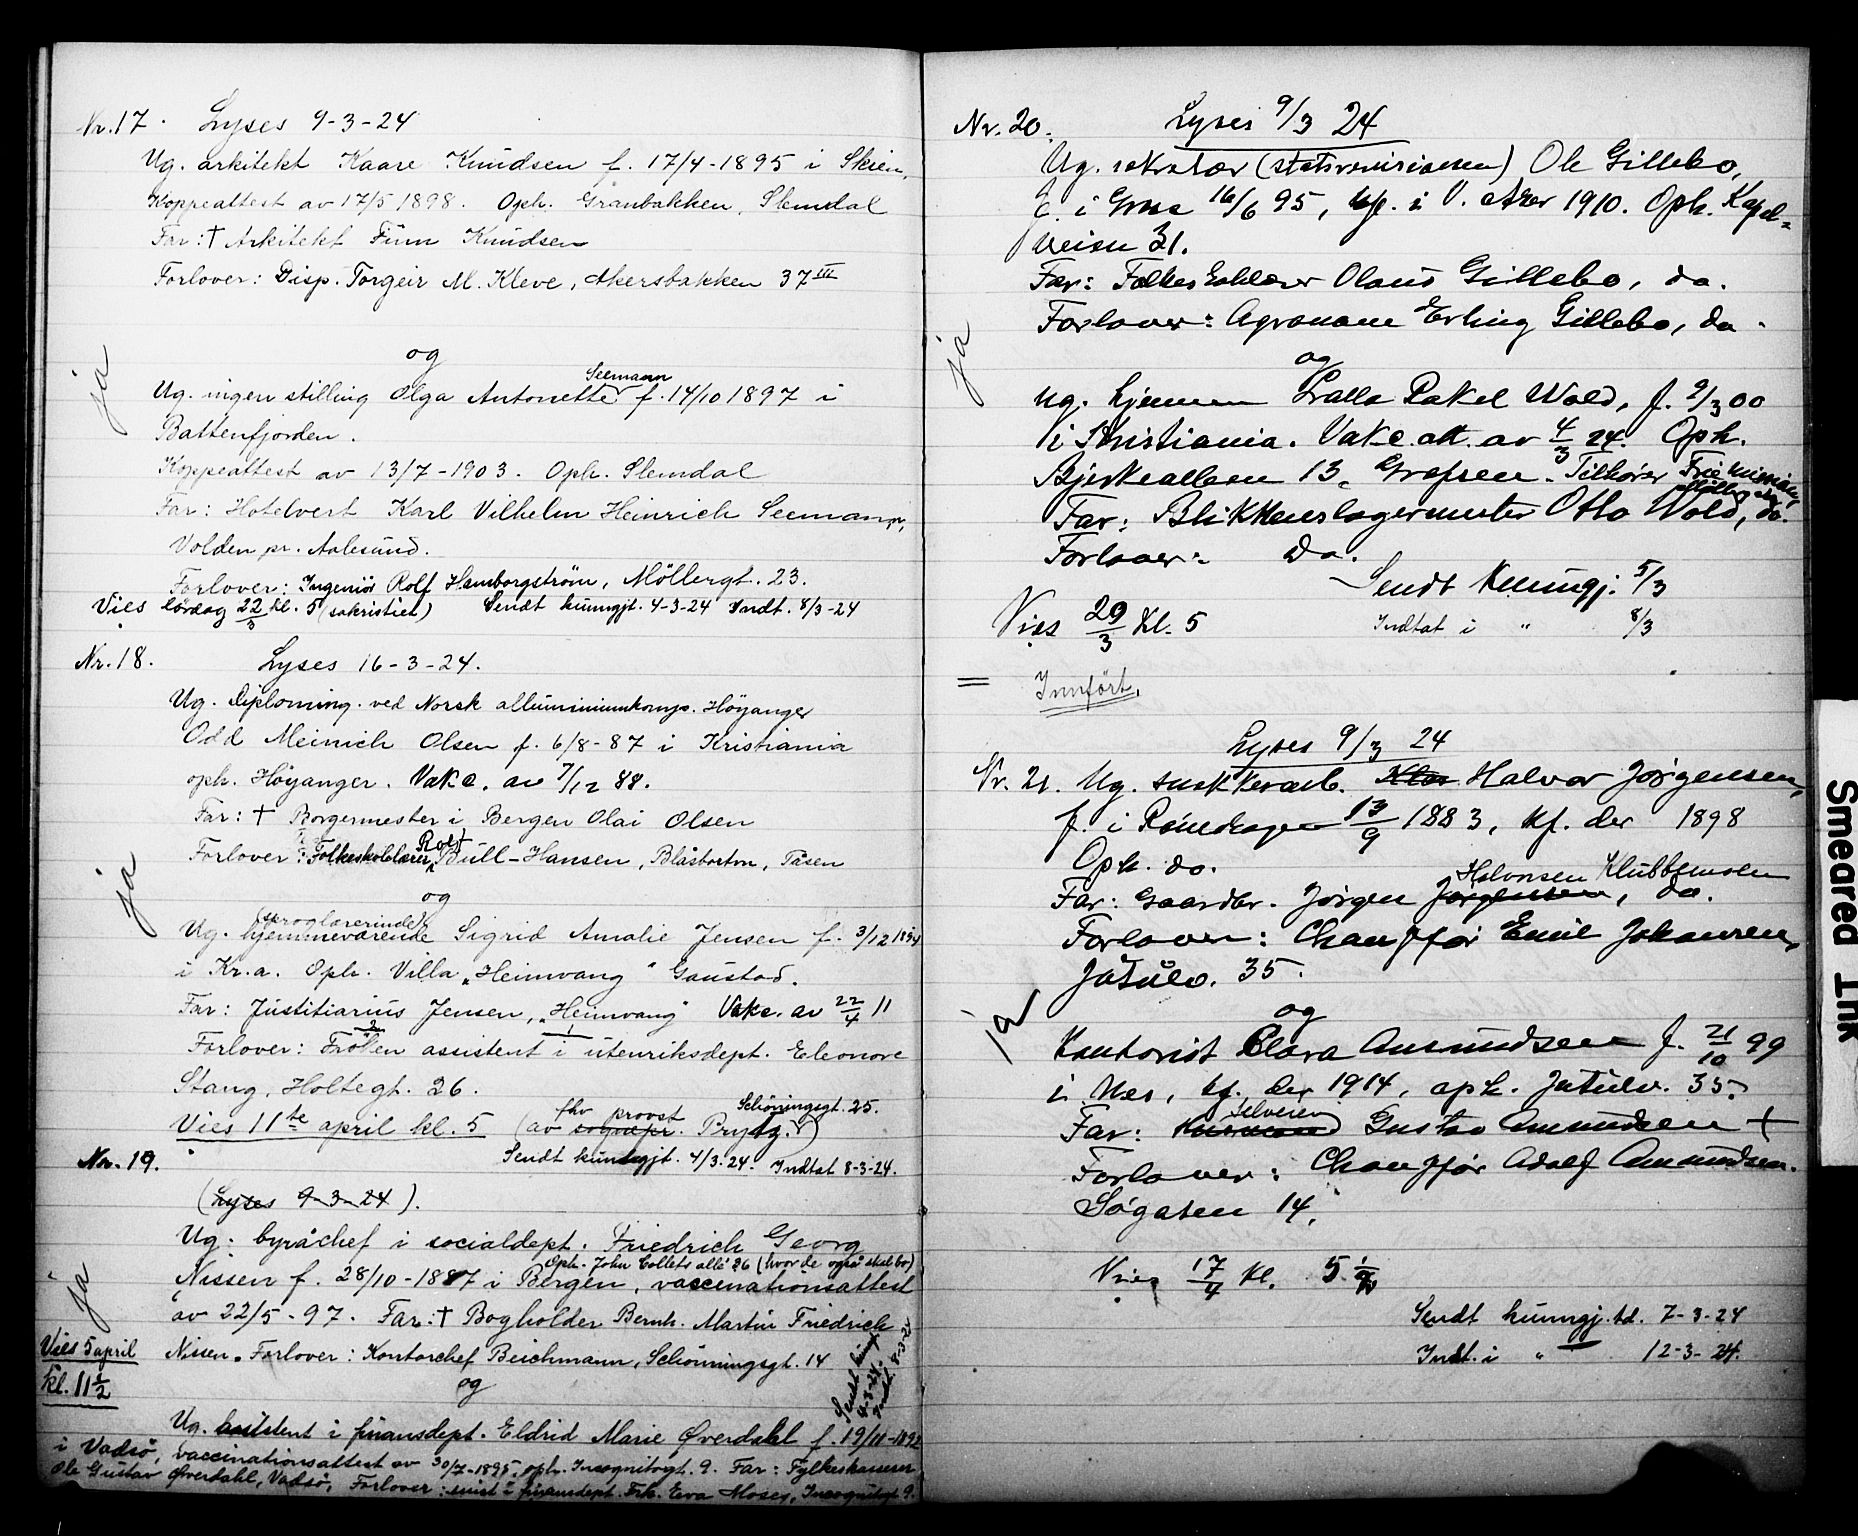 Nr. 17. Lyses 9-3-24
Ug. arkitekt Kaare Knudsen f. 17/4-1895 i Skien,
Koppeattest av 17/5 1898. Oph. Granbakken, Slemdal
Far: † Arkitekt Finn Knudsen
Forlover: Disp. Torgeir M. Kleve, Akersbakken 37 III
og
ja
Seemann
Ug. ingen stilling Olga Antonette f. 14/10 1897 i
Battenfjorden.
Koppeattest av 13/7-1903. Oph. Slemdal
Far: Hotelvert Karl Vilhelm Heinrich Seemann,
Volden pr. Aalesund.
Forlover: Ingeniör Rolf Hamborgström, Möllergt. 23.
Vies lördag 22/3 kl. 5 (sakristiet) Sendt kunngjt. 4-3-24 Indt. 8/3-24
Nr. 18. Lyses 16-3-24.
Ug. Diploming. ved Norsk alluminiumkomp. Höyanger
Odd Meinich Olsen f. 6/8-87 i Kristiania
oph. Höyanger. Vakc. av 7/12 88.
Far: † Borgermester i Bergen Olai Olsen
Rolf
Forlover: Folkeskolelærer Bull-Hansen, Blåsbortn, Tåsen
ja
og
(sproglærerinde)
Ug. hjemmeværende Sigrid Amalie Jensen f. 3/12 1894
i Kr.a. Oph. Villa „Heimvang" Gaustad.
Far: Justitiarius Jensen, „Heimvang" Vakc. av 22/4 11
Forlover: Fröken assistent i utenriksdept. Eleonore
Stang, Holtegt. 26.
fhv provst Schöningsgt. 25.
Vies 11te april kl. 5 (av sognepr. Prytz.)
Sendt kunngjt. 4/3-24. Indtat 8-3-24.
Nr. 19.
(Lyses 9-3-24).
Ug. byråchef i socialdept. Friedrich Georg
Oph. John Collets allé 26 (hvor de også skal bo)
Nissen f. 28/10-1887 i Bergen, vaccinationsattest
av 22/5-97. Far: † Bogholder Bernh. Martin Friedrich
ja
Vies 5 april
kl. 11 1/2
Nissen. Forlover: Kontorchef Beichmann, Schönningsgt. 14
og
Sendt kunngj. 4-3-24. Indt. 8-3-24
Ug. assistent i finansdept. Eldrid Marie Øverdahl f. 19/11-1892
i Vadsö, vaccinationsattest av 30/7-1895, oph. Incognitogt. 9. Far: Fylkeskasserer
Ole Gustav Øverdahl, Vadsö, Forlover: assist i finansdept. Frk. Eva Moses, Incognitogt 9.
Nr. 20. Lyses 9/3 24
Ug. sekretær (statsrevisionen) Ole Gillebo,
f. i Grue 16/6 95, kf. i V. Aker 1910. Oph. Kapel-
veien 31.
Far: Folkeskolelærer Olaus Gillebo, do.
Forlover: Agronom Erling Gillebo, do.
ja
og
Ug. hjemme Lalla Rakel Wold, f. 9/3 00
i Kristiania. Vakc. att. av 4/3 24. Oph.
Bjerkealleen 13, Grefsen. Tilhører Frie missions
Far: Blikkenslagermester Otto Wold, do.
Forlover: do.
Sendt Kunngj: 5/3
Vies 29/3 Kl. 5
Indtat i " 8/3
= Innfört.
Lyses 9/3 24
Nr. 21. Ug. snekkerarb. Halvor Jørgensen,
f. i Romedragen 13/9 1883, kf. der 1898
Oph. do.
Halvorsen Klubbemoen
Far: Gaardbr. Jørgen Jørgensen, do.
Forlover: Chauffør Emil Johansen,
Jutulv. 35.
ja
og
Kontorist Clara Amundsen f. 21/10 99
i Nes, kf. der 1914, oph. Jutulv. 35.
Selveier
Far: Husmand Gustav Amundsen †
Forlover: Chauffør Adolf Amundsen.
Søgaten 14.
Vies 17/4 Kl. 5 1/2
Sendt kunngj. td. 7-3-24
Indt. i " 12-3-24.
Smeared Ink